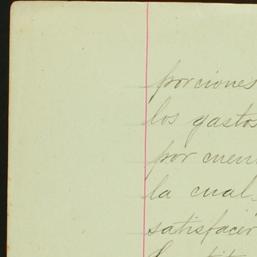 porciones
los gastos
por cuen
la cual,
satisfacer